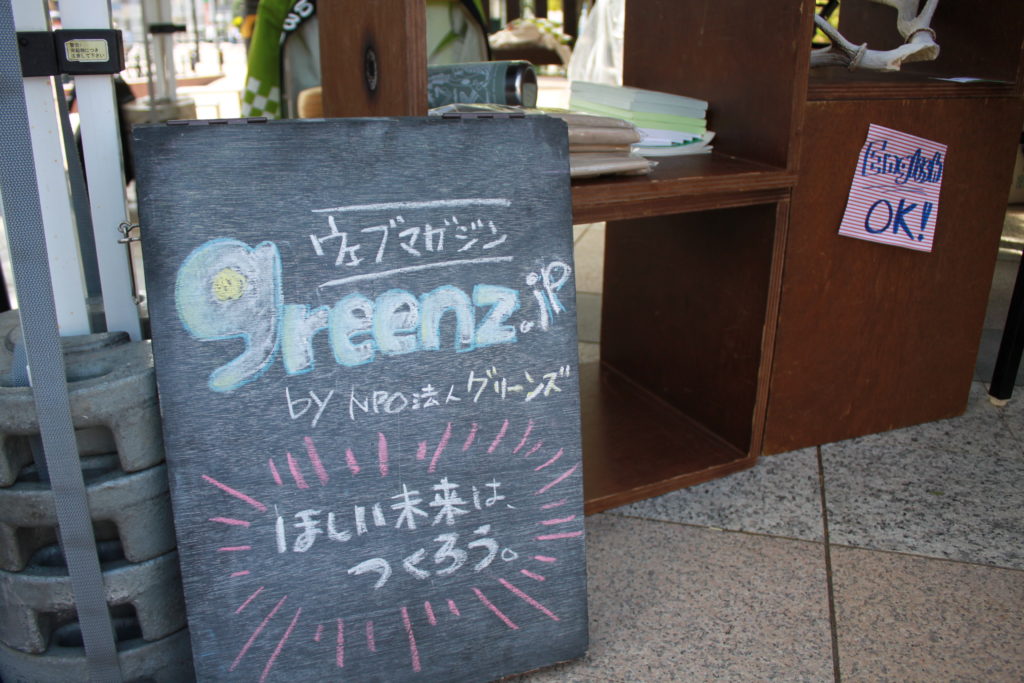 ウェブマガジン
greenz.jp
by NPO法人グリーンズ
ほしい未来は、
つくろう。
English
OK!!